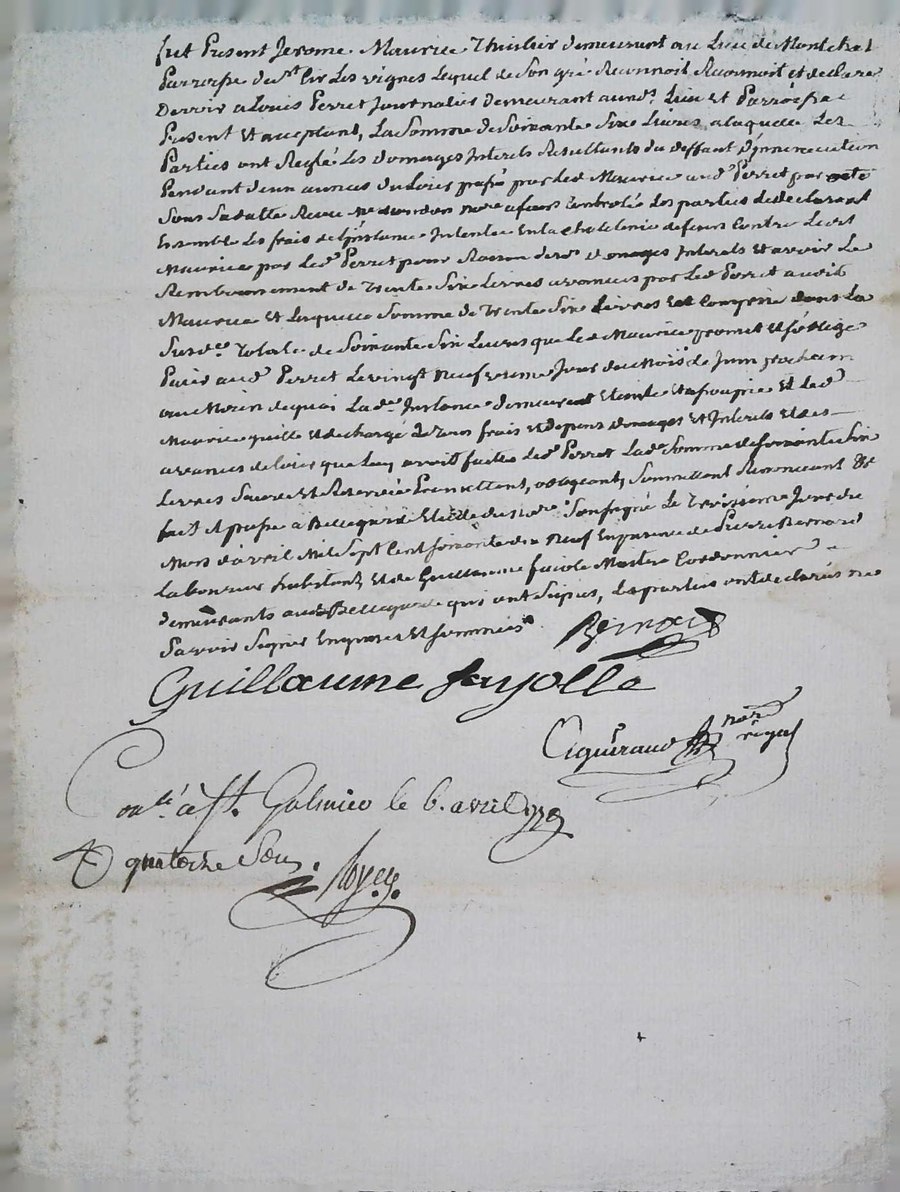 fut Present Jerome Maurice Thuilier demeurant au Lieu de Montchal
Parroisse de St Cir Les vignes Lequel de Son gré Reconnoit et declare
Devoir a Louis Perret Journalier demeurant aud. Lieu et Parroisse
Present Et acceptant, La Somme de Soixante Six Livres a laquelle Les
Parties ont Reglé Les domages Interets Resultants du deffaut d'
Pendant deux années du passé par led Maurice aud Perret par acte
Sous Sa datte Recu Me nore a feurs Controlé Les parties de declarant
Ensemble Les frais de l'instance Intentée En la chatelenie de feurs Contre Led
Maurice par Led Perret pour Raison desd domages Interets Et avoir Le
Remboursement de Trente Six Livres avancés par Led Perret aud
Maurice Et Laquelle Somme de Trente Six Livres Est Comprise dans La
Susde Totale de Soixante Six Livres que Led Maurice promet Et s'oblige
Paier aud Perret Le vingt neuf Jour du Mois de Juin prochain
au Moien de quoi La de Instance demeure Eteinte Et assoupie Et Led
Maurice quitte Et dechargé de Tous frais Et depens domages Et Interets Et des
avances que Luy avoit faites Led Perret Lad Somme de Soixante Six
Livres Sauve Et Reservée Promettant, obligeant, Soumettant Renonceant &c
fait Et passé a Bellegarde Etude du nore Soussigné Le Troisieme Jour du
Mois d'avril Mil Sept Cent Soixante dix neuf En presence de Pierre Bernard
Laboureur habitant, Et de Guillaume faiole Maitre Cordonnier
demeurants aud Bellegarde qui ont Signé, Les parties ont declaré ne
Savoir Signer Enquises Et Sommées
Bernard
Guillaume fayolle
nore
royal
Conlé à St. Galmier le 6. avril 1779
quatorze Sous.